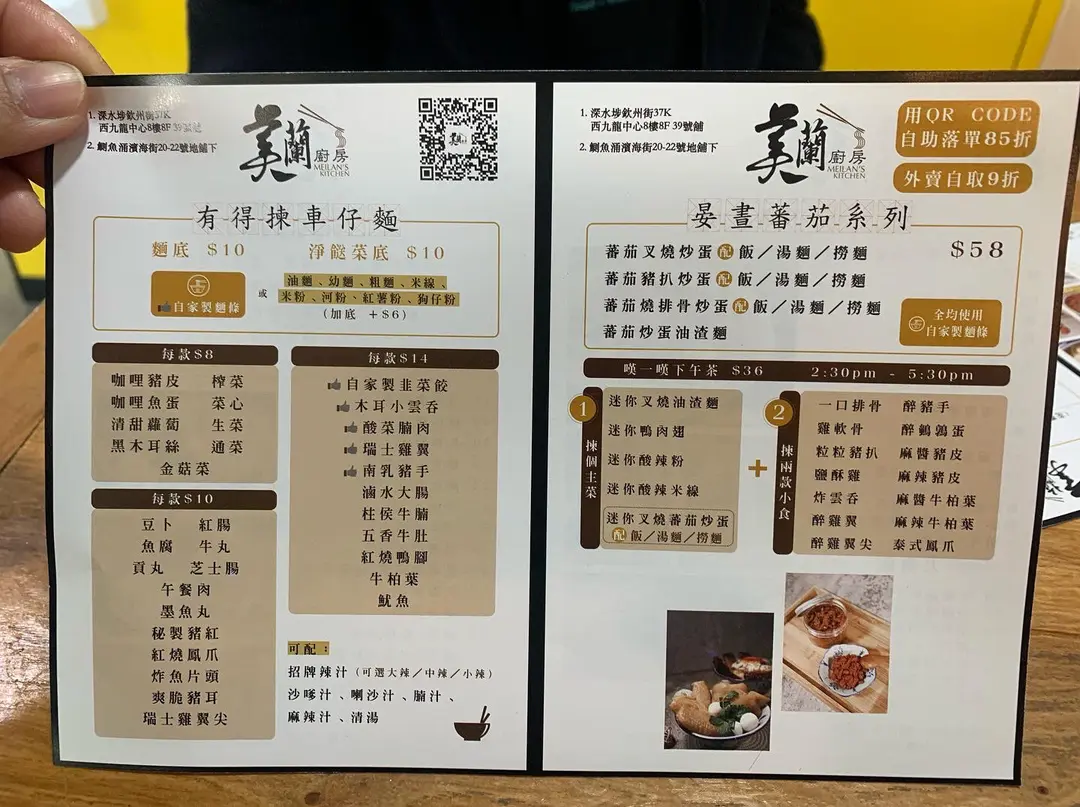 1. 深水埗欽州街37K
西九龍中心8樓8F 39號舖
2. 鰂魚涌濱海街20-22號地舖下
美蘭
廚房
MEILAN'S
KITCHEN
有得揀車仔麵
麵底 $10
淨餸菜底 $10
自家製麵條
或
油麵、幼麵、粗麵、米線、
米粉、河粉、紅薯粉、狗仔粉
(加底 +$6)
每款$8
咖哩豬皮 榨菜
咖哩魚蛋 菜心
清甜蘿蔔 生菜
黑木耳絲 通菜
金菇菜
每款$10
豆卜 紅腸
魚腐 牛丸
貢丸 芝士腸
午餐肉
墨魚丸
秘製豬紅
紅燒鳳爪
炸魚片頭
爽脆豬耳
瑞士雞翼尖
每款$14
自家製韭菜餃
木耳小雲吞
酸菜腩肉
瑞士雞翼
南乳豬手
滷水大腸
柱侯牛腩
五香牛肚
紅燒鴨腳
牛柏葉
魷魚
可配：
招牌辣汁（可選大辣／中辣／小辣）
沙嗲汁、喇沙汁、腩汁、
麻辣汁、清湯
1. 深水埗欽州街37K
西九龍中心8樓8F 39號舖
2. 鰂魚涌濱海街20-22號地舖下
美蘭
廚房
MEILAN'S
KITCHEN
用QR CODE
自助落單85折
外賣自取9折
晏晝蕃茄系列
蕃茄叉燒炒蛋配飯／湯麵／撈麵 $58
蕃茄豬扒炒蛋配飯／湯麵／撈麵
蕃茄燒排骨炒蛋配飯／湯麵／撈麵
蕃茄炒蛋油渣麵
全均使用
自家製麵條
嘆一嘆下午茶 $36 2:30pm - 5:30pm
1
揀個主菜
迷你叉燒油渣麵
迷你鴨肉翅
迷你酸辣粉
迷你酸辣米線
迷你叉燒蕃茄炒蛋
配飯／湯麵／撈麵
+
2
揀兩款小食
一口排骨 醉豬手
雞軟骨 醉鵪鶉蛋
粒粒豬扒 麻醬豬皮
鹽酥雞 麻辣豬皮
炸雲吞 麻醬牛柏葉
醉雞翼 麻辣牛柏葉
醉雞翼尖 泰式鳳爪